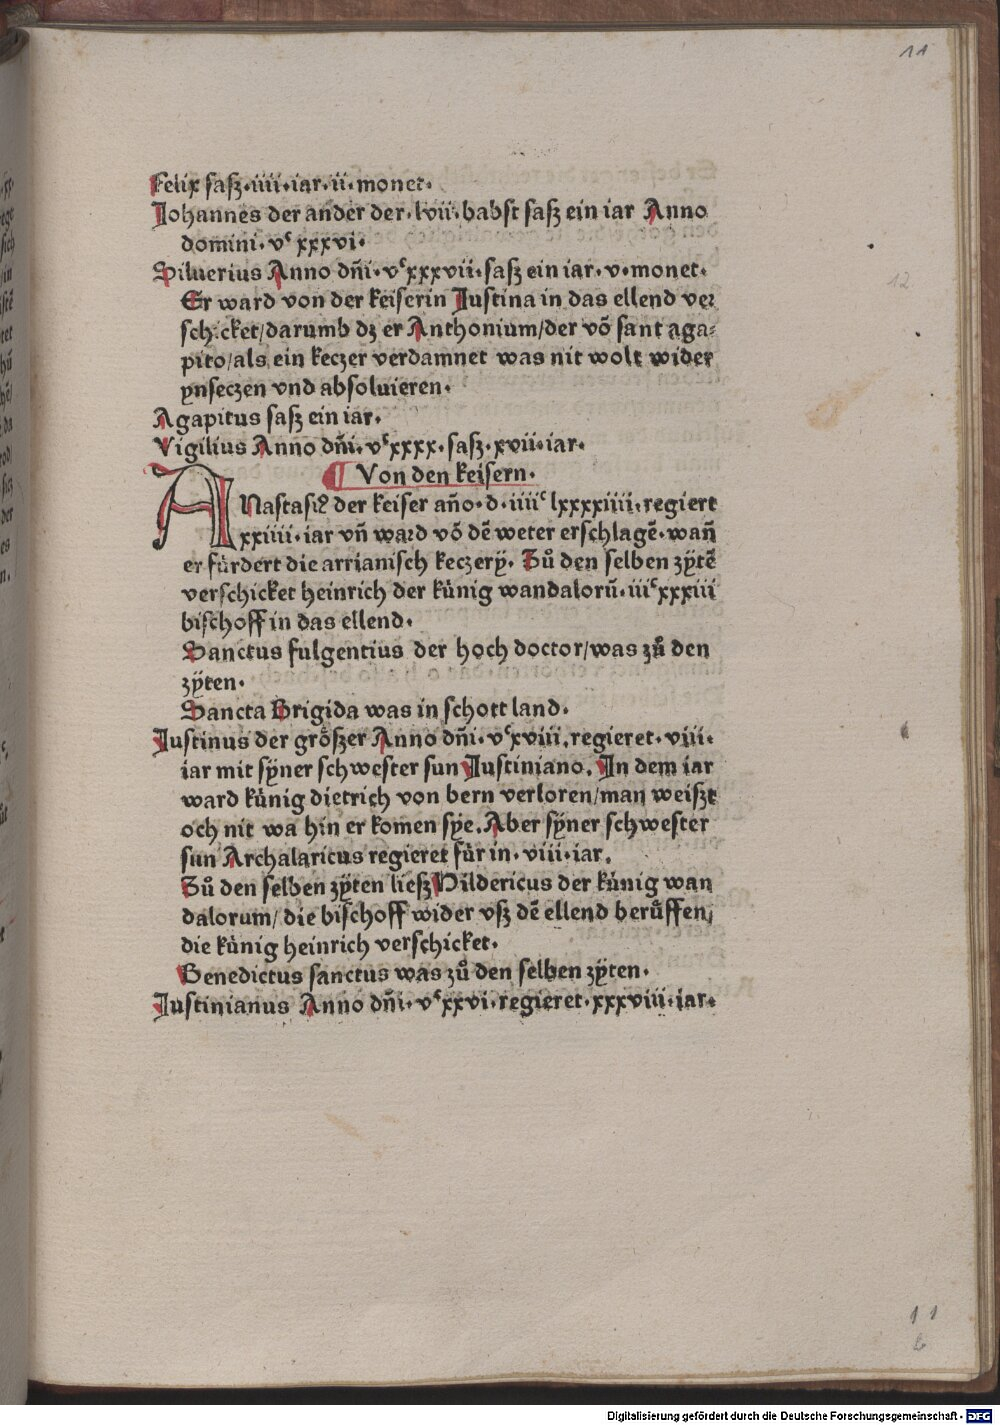 11
Felix saſz·iiii·iar·ii·monet·
Johannes der ander der·lvii·babſt saſz ein iar Anno
domini·vᶜ xxxvi·
Siluerius Anno dñi·vᶜxxxvii·saſz ein iar·v·monet·
Er ward von der keiserin Juſtina in das ellend ver
schicket/darumb dz er Anthonium/der võ sant aga⸗
pito/als ein keczer verdamnet was nit wolt wider
ynseczen vnd absoluieren·
Agapitus saſz ein iar·
Vigilius Anno dñi·vᶜxxxx·saſz·xvii·iar·
¶ Von den keisern·
ANastasiꝰ der keiser año·d·iiiiᶜ lxxxxiiii·regiert
xxiiii·iar vñ ward võ dẽ weter erschlagẽ·wañ
er fürdert die arrianisch keczery. Zuͦ den selben zÿtẽ
verschicket heinrich der künig wandaloꝛũ·iiiᶜxxxiii
bischoff in das ellend·
Sanctus fulgentius der hoch doctor/was zuͦ den
zÿten·
Sancta Brigida was in schott land·
Juſtinus der gröſzer Anno dñi·vᶜxviii.regieret·viii·
iar mit sÿner schweſter sun Juſtiniano. In dem iar
ward künig dietrich von bern verloren/man weiſzt
och nit wa hin er komen sye. Aber sÿner schweſter
sun Archalaricus regieret für in·viii·iar.
Zuͦ den selben zÿten lieſz Hildericus der künig wan
dalorum/die bischoff wider vſz dẽ ellend berüffen/
die künig heinrich verschicket·
Benedictus sanctus was zuͦ den selben zÿten·
Juſtinianus Anno dñi·vᶜxxvi·regieret·xxxviii·iar·
12
11
Digitalisierung gefördert durch die Deutsche Forschungsgemeinschaft - DFG